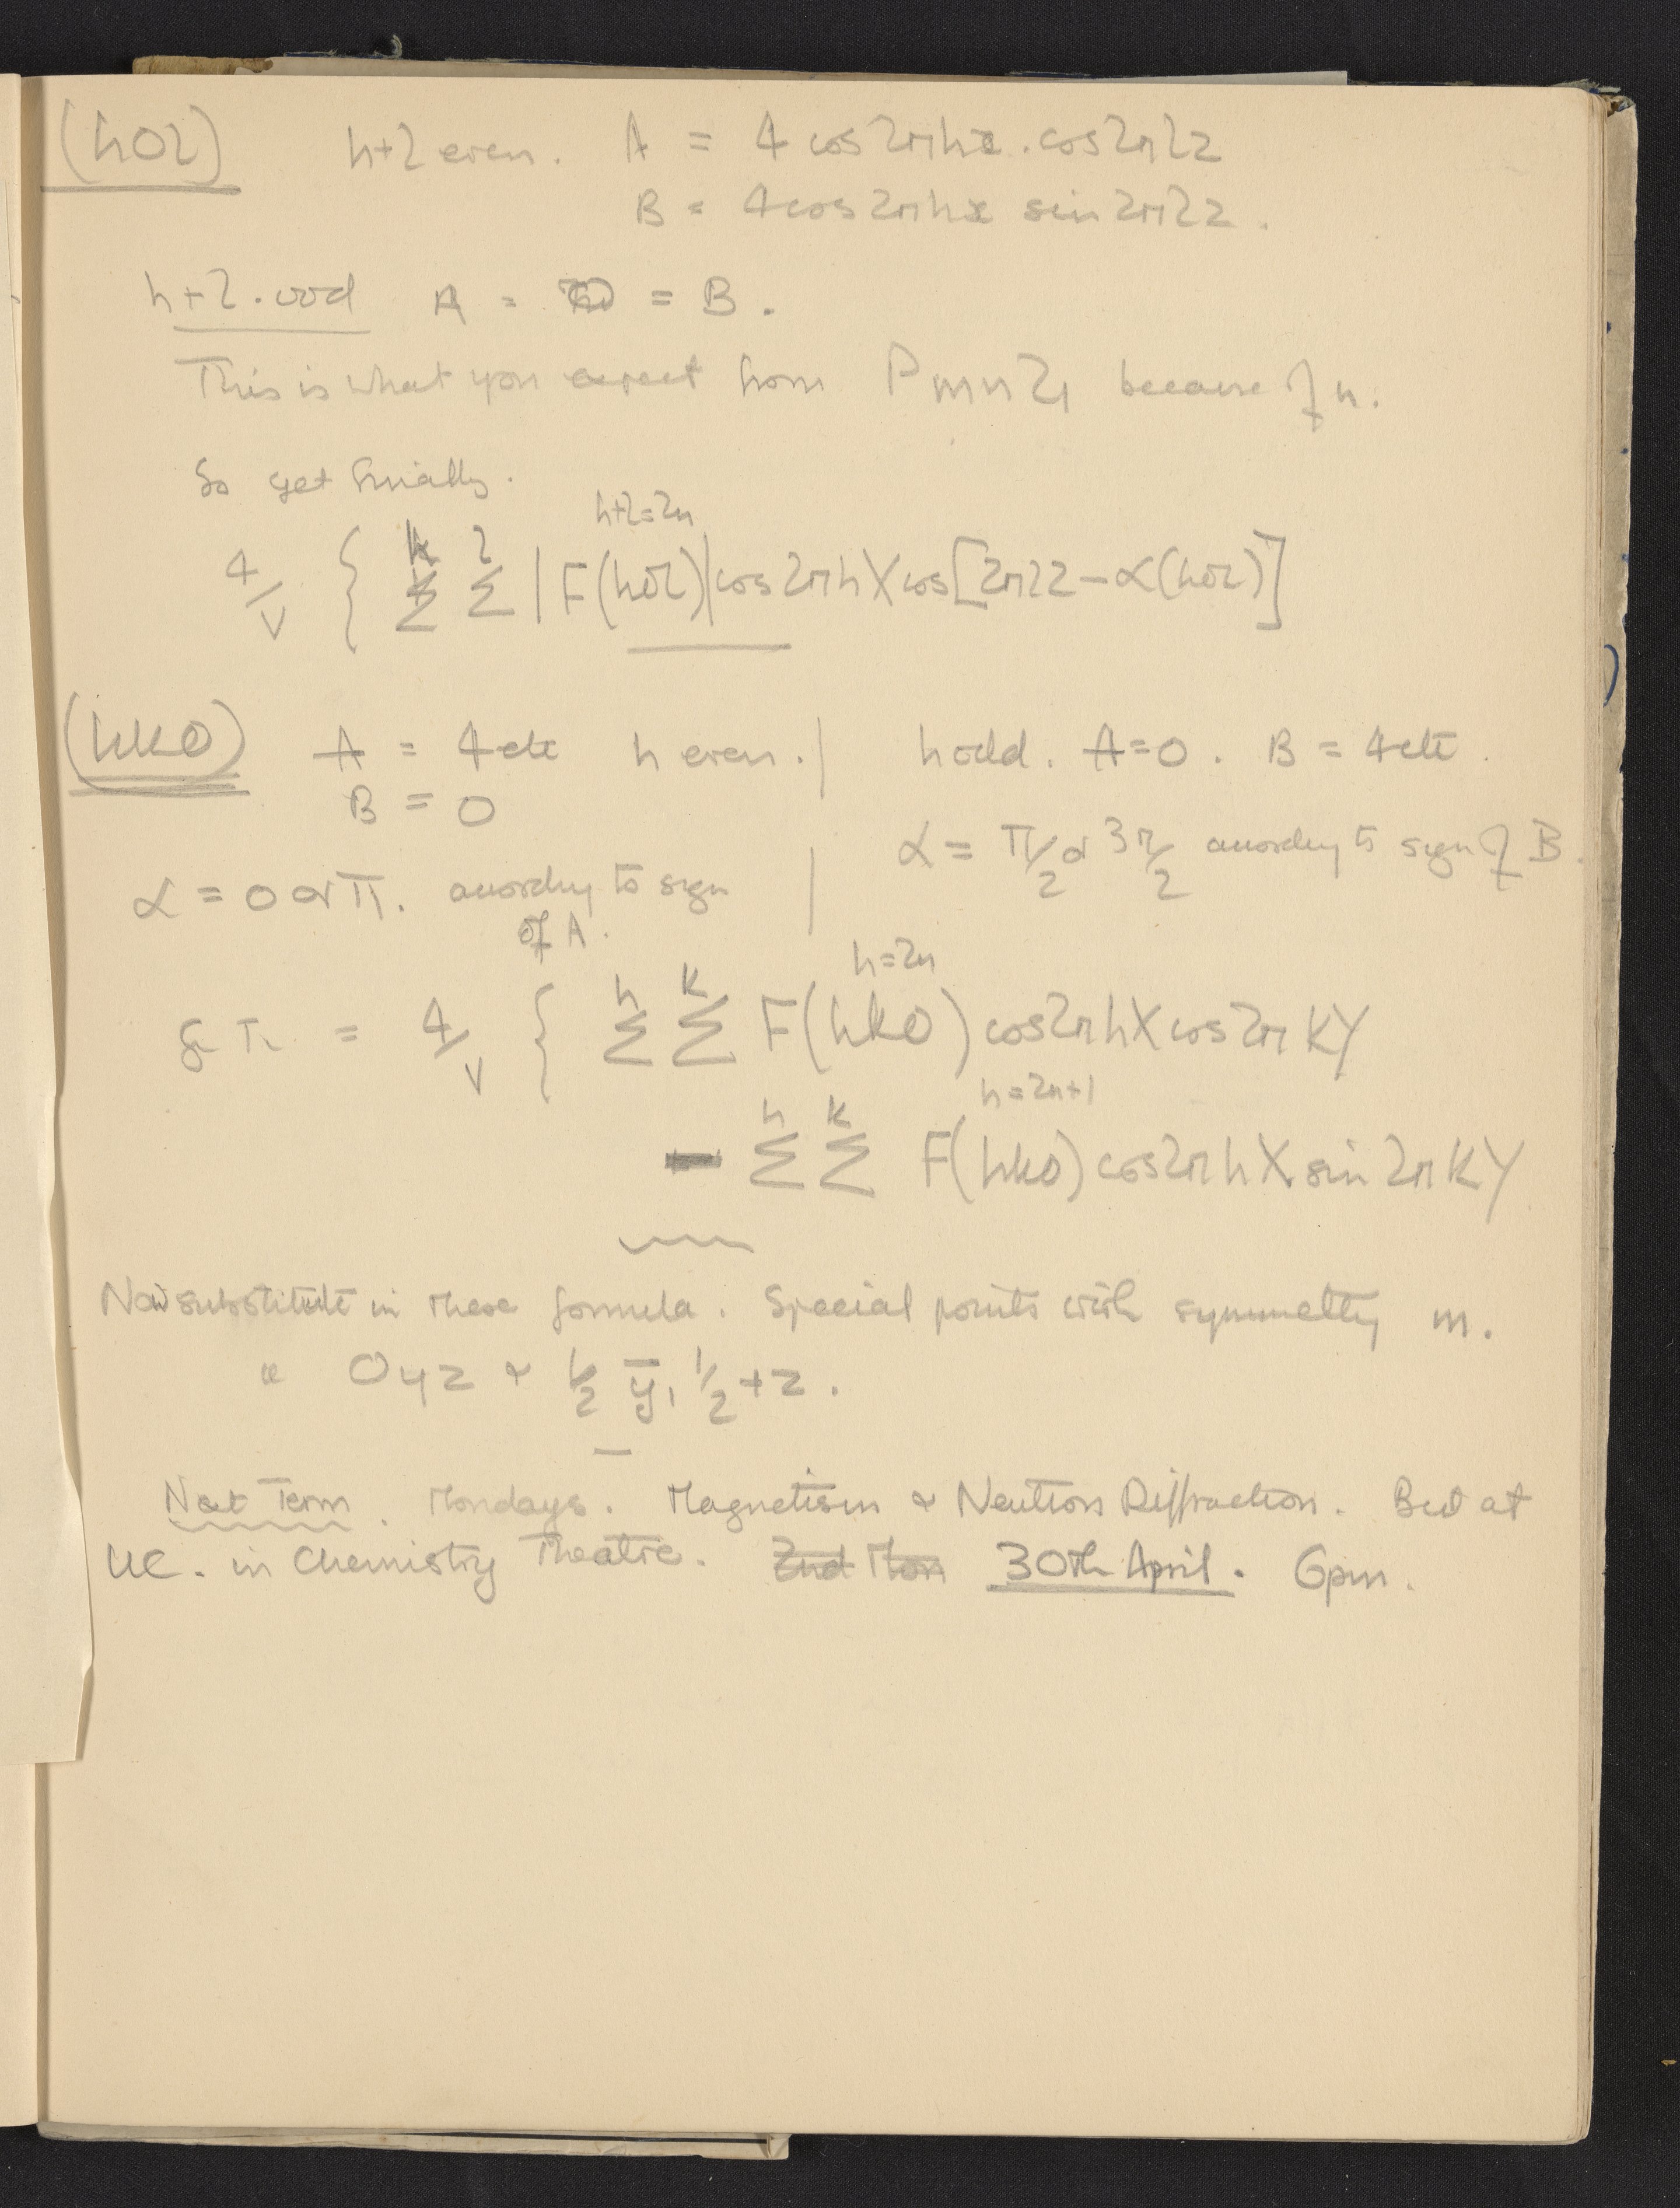 (h0l) h+l even. A = 4 cos2πhx . cos2πlz
B = 4cos2πhx sin2πlz .
h+l . odd A = 0 = B .
This is what you expect from Pmn2₁ because of n .
So get finally .
4/V { Σʰ Σˡ |F(h0l)|ʰ⁺ˡ⁼²ⁿ cos2πhX cos[2πlz – α(h0l)]
(hk0) A = 4 etc h even . | h odd . A = 0 . B = 4 etc .
B = 0
α = π/2 or 3π/2 according to sign of B .
α = 0 or π . according to sign
of A .
= 4/V { Σʰ Σᵏ F(hk0)ʰ⁼²ⁿ cos2πhX cos2πkY
– Σʰ Σᵏ F(hk0)ʰ⁼²ⁿ⁺¹ cos2πhX sin2πkY
Now substitute in these formula . Special points with symmetry m .
0yz & ½ ȳ, ½+z .
Next Term . Mondays . Magnetism & Neutron Diffraction . But at
UC . in Chemistry Theatre . 2nd Mon 30th April . 6pm .